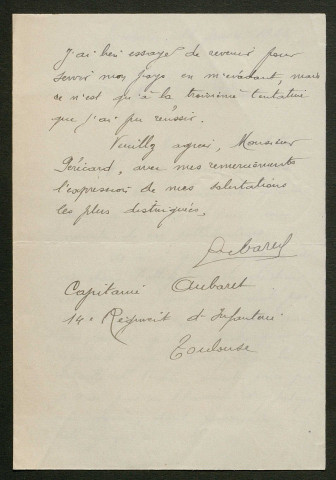 J'ai bien essayé de revenir pour
servir mon pays en m'évadant, mais
ce n'est qu'à la troisième tentative
que j'ai pu réussir.
Veuillez agréer, Monsieur
Péricard, avec mes remerciements
l'expression de mes salutations
les plus distinguées.
Aubaret
Capitaine Aubaret
14e Régiment d'Infanterie
Toulouse